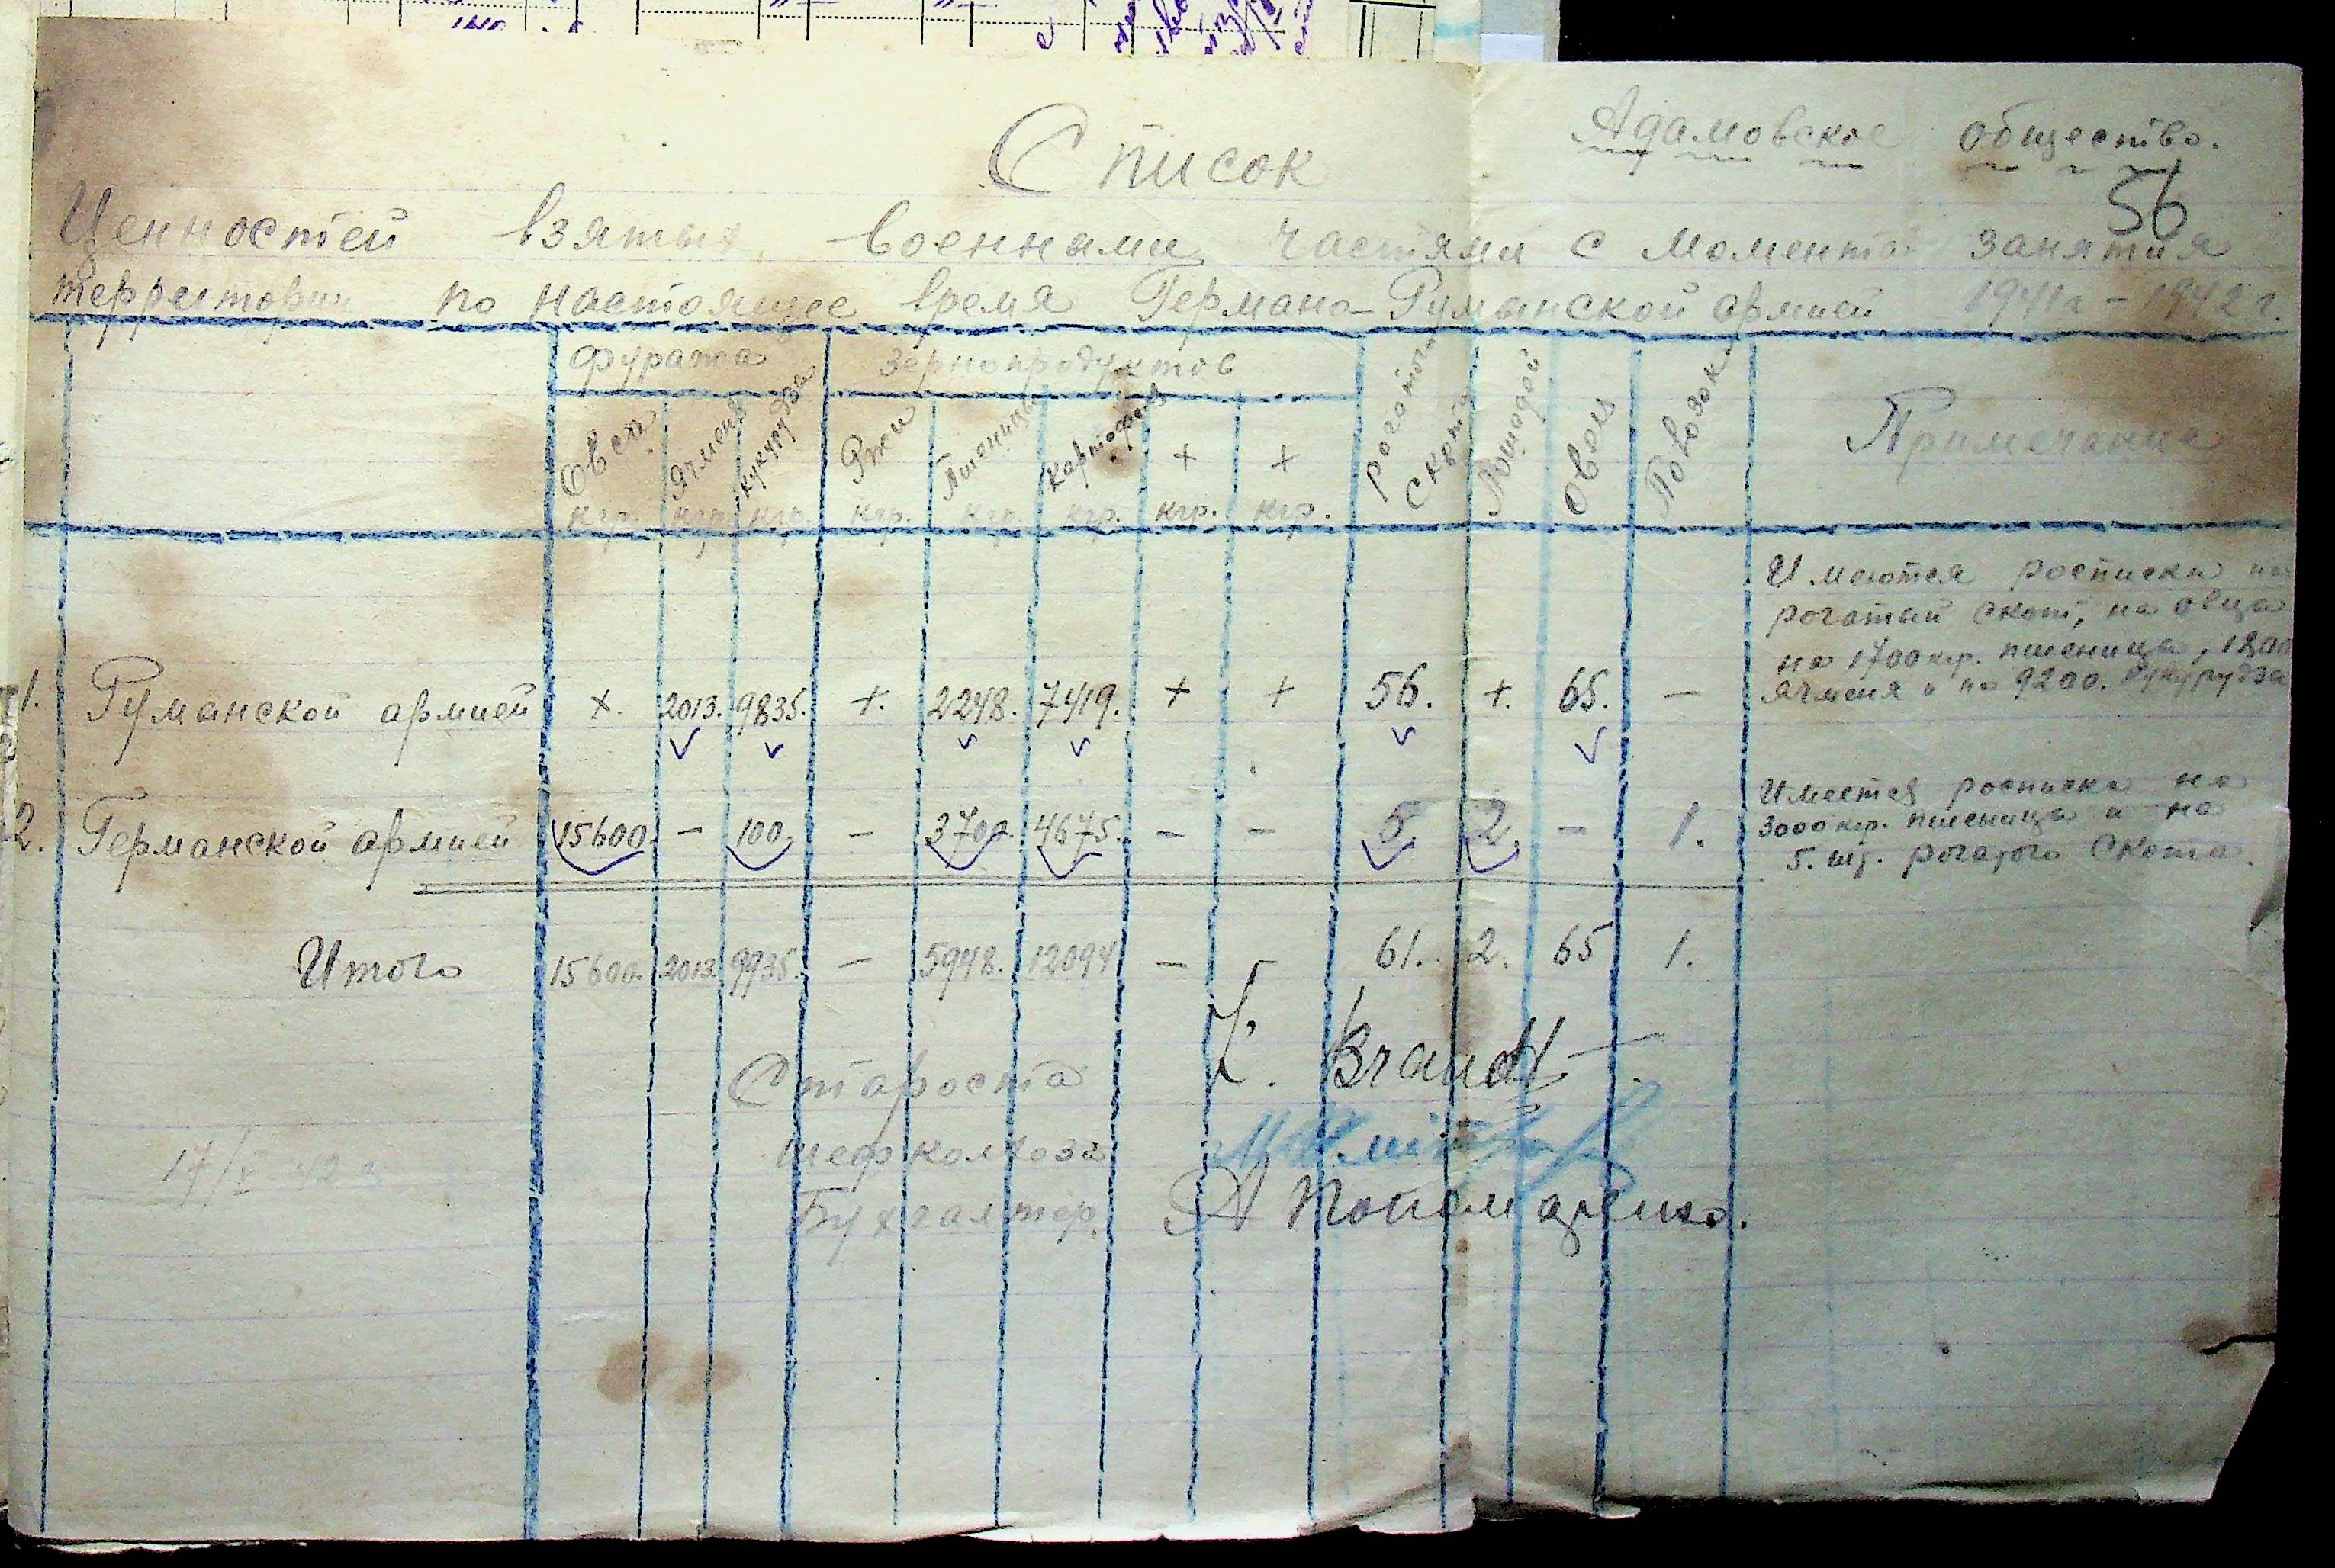 Адамовское общество.
56
Список
Ценностей взятых военнами частями с момента занятия
территории по настоящее время Германо-Румынской армией 1941г - 1942 г.
Фуража Зернопродуктов Рогатого Скота Лошадей Овец Повозок Примечание
Овса Ячменя кукурудза Ржи Пшеницы Картофель + +
кгр. кгр. кгр. кгр. кгр. кгр. кгр. кгр.
Имеются росписки на
рогатый скот, на овца
на 1700 кгр. пшеница, 1800
ячменя и на 9200. кукурудза
1. Руманской армией +. 2013. 9835. +. 2248. 7419. + + 56. +. 65. —
2. Германской армией 15600. — 100. — 3700. 4675. — — 5. 2. — 1.
Имеется росписка на
3000 кгр. пшеница и на
5. шт. рогатого скота.
Итого 15600. 2013. 9935. — 5948. 12094 — — 61. 2. 65 1.
Староста Brandt
шеф колхоза
17/V 42 г
Бухгалтер. А Пономаренко.